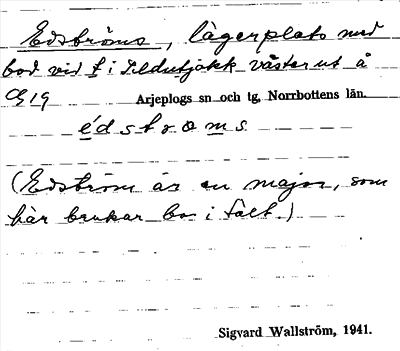 Edströms, lägerplats med
bod vid f i Ildutjåkk väster ut å
Cg 19 Arjeplogs sn och tg, Norrbottens län.
é d s t r ö m s
(Edström är en major, som
här brukar bo i tält.)
Sigvard Wallström, 1941.